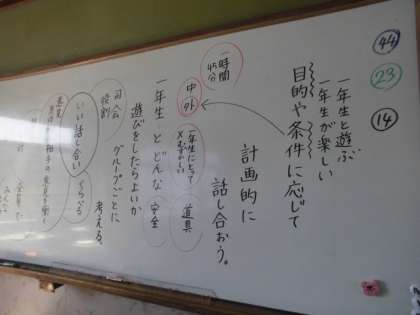 44
23
14
一年生と遊ぶ
一年生が楽しい
目的や条件に応じて
計画的に
話し合おう。
一時間
45分
中
外
一年生にとって
×むずかしい
道具
安全
一年生とどんな
遊びをしたらよいか
グループごとに
考える。
司会
役割
いい話し合い
くらべる
意見
相手の意見を聞く